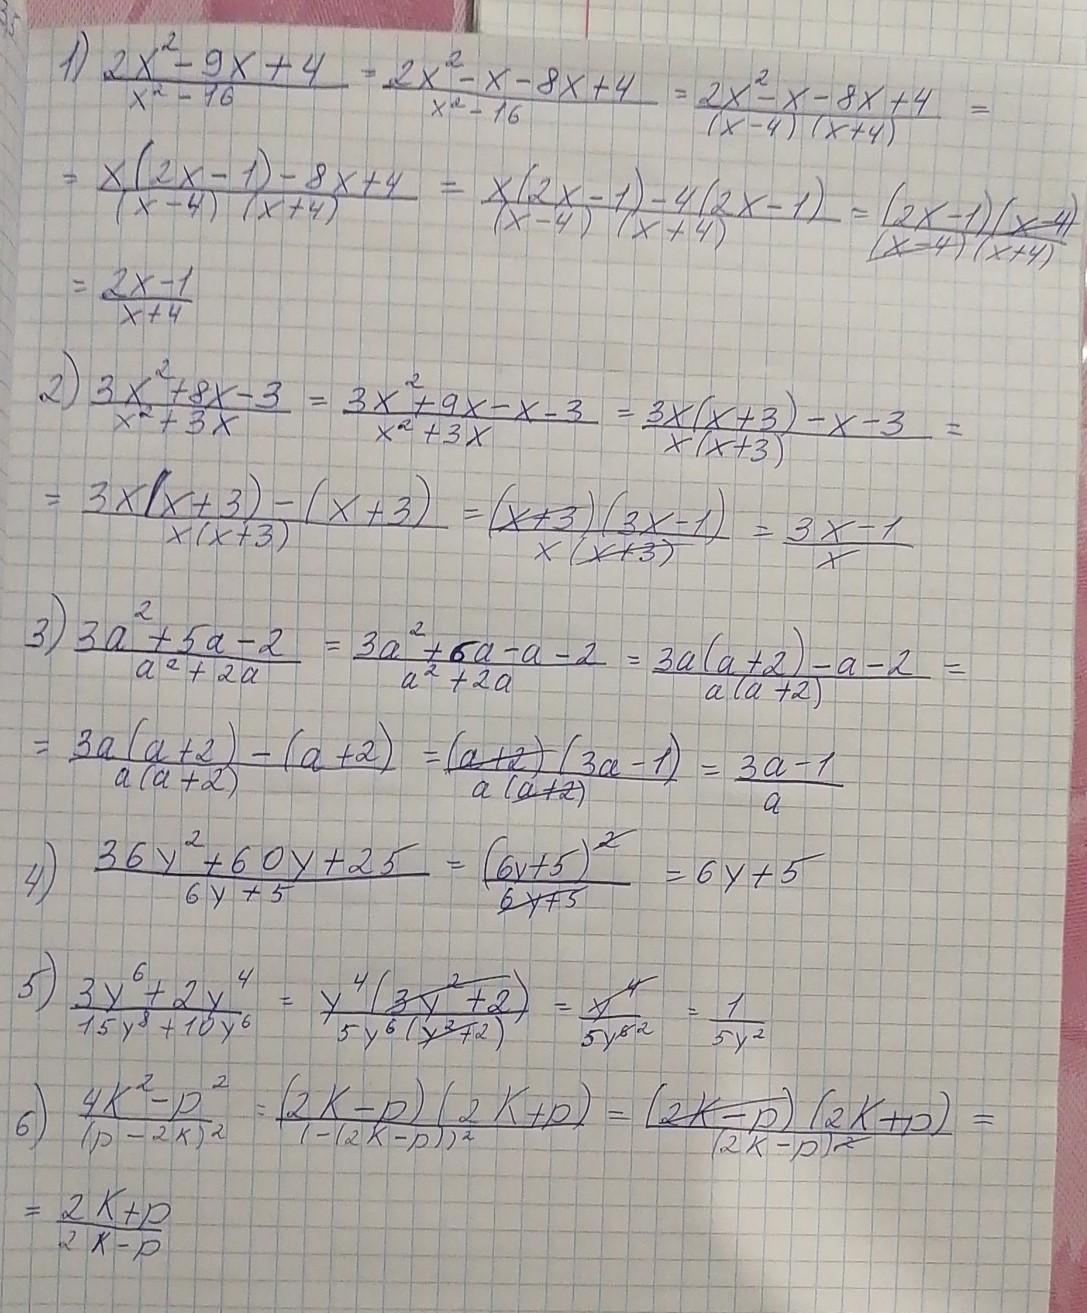 1) (2x² - 9x + 4)/(x² - 16) = (2x² - x - 8x + 4)/(x² - 16) = (2x² - x - 8x + 4)/((x-4)(x+4)) =
= (x(2x-1) - 8x+4)/((x-4)(x+4)) = (x(2x-1) - 4(2x-1))/((x-4)(x+4)) = ((2x-1)(x-4))/((x-4)(x+4))
= (2x-1)/(x+4)
2) (3x² + 8x - 3)/(x² + 3x) = (3x² + 9x - x - 3)/(x² + 3x) = (3x(x+3) - x - 3)/(x(x+3)) =
= (3x(x+3) - (x+3))/(x(x+3)) = ((x+3)(3x-1))/(x(x+3)) = (3x-1)/x
3) (3a² + 5a - 2)/(a² + 2a) = (3a² + 6a - a - 2)/(a² + 2a) = (3a(a+2) - a - 2)/(a(a+2)) =
= (3a(a+2) - (a+2))/(a(a+2)) = ((a+2)(3a-1))/(a(a+2)) = (3a-1)/a
4) (36y² + 60y + 25)/(6y+5) = (6y+5)²/(6y+5) = 6y+5
5) (3y⁶ + 2y⁴)/(15y⁸ + 10y⁶) = (y⁴(3y² + 2))/(5y⁶(y²+2)) = y⁴/(5y⁶²) = 1/(5y²)
6) (4k² - p²)/(p - 2k)² = ((2k-p)(2k+p))/(-(2k-p))² = ((2k-p)(2k+p))/(2k-p)² =
= (2k+p)/(2k-p)